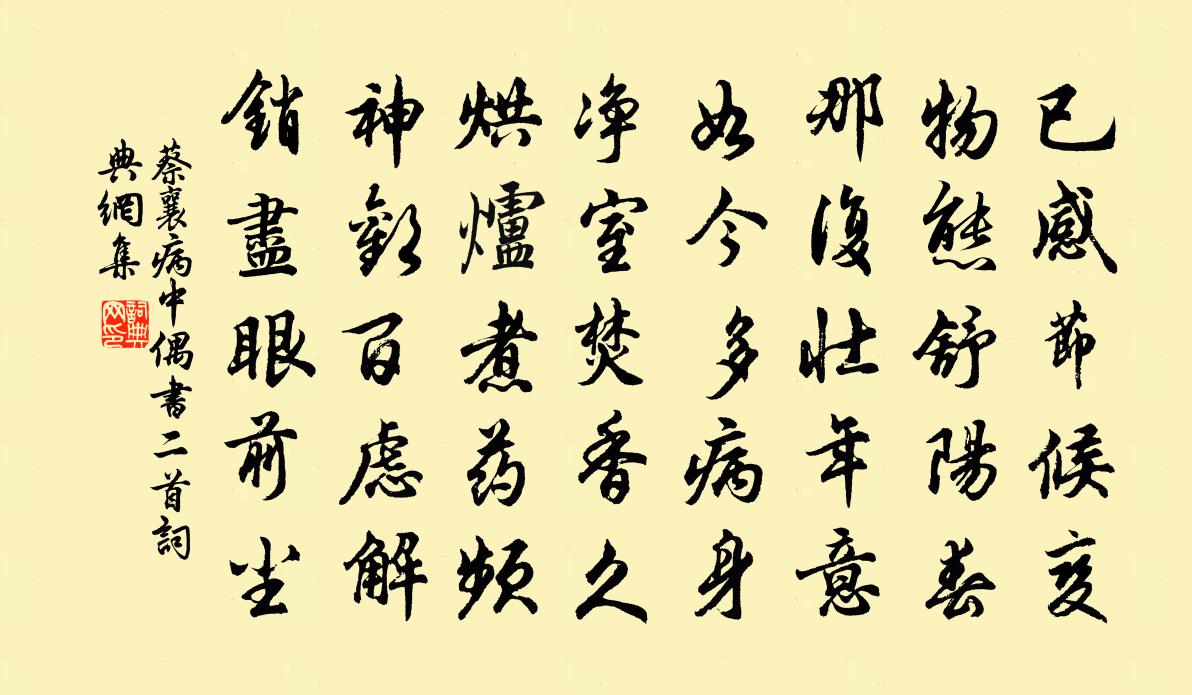 已感節候变
物態舒陽春
那復壮年意
如今多病身
净室焚香久
烘爐煮药頻
神歡百虑解
銷盡眼前尘
蔡襄病中偶書二首詞
典網集
詞典
网印